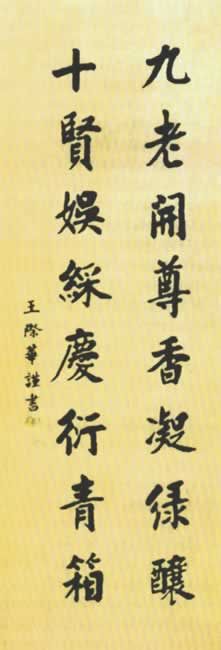 九老開尊香凝緑醸
十賢娛綵慶衍青箱
王際華謹書